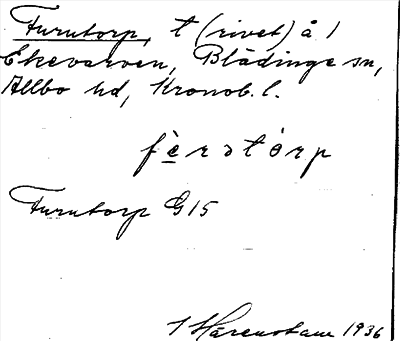 Furutorp, t (rivet) å 1
Ekevarven, Blädinge sn,
Allbo hd, Kronob. l.
fè̱rətòrp
Furutorp G15
1936